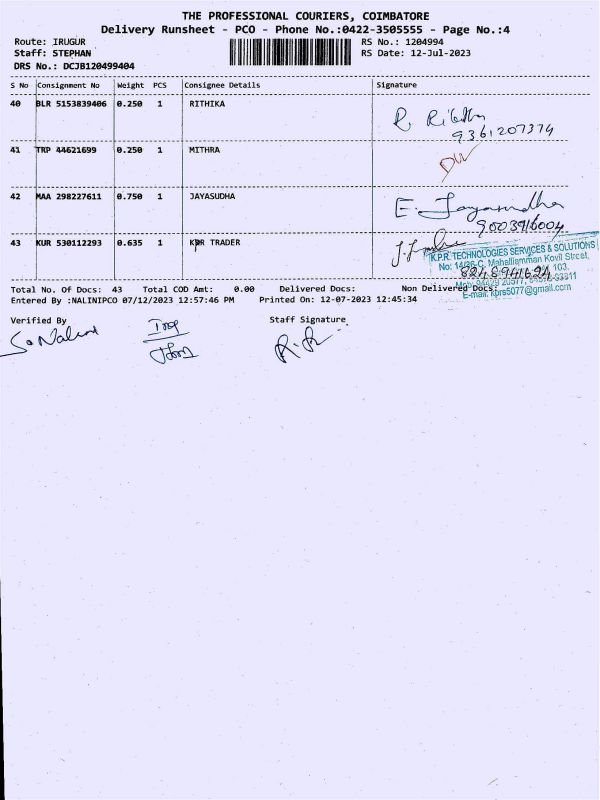 THE PROFESSIONAL COURIERS, COIMBATORE
Delivery Runsheet - PCO - Phone No.:0422-3505555 - Page No.:4
Route: IRUGUR RS No.: 1204994
Staff: STEPHAN RS Date: 12-Jul-2023
DRS No.: DCJB120499404
S No Consignment No Weight PCS Consignee Details Signature
40 BLR 5153839406 0.250 1 RITHIKA
R. Rithika
9361207374
41 TRP 44621699 0.250 1 MITHRA
42 MAA 298227611 0.750 1 JAYASUDHA E. Jayasudha
9003916004
43 KUR 530112293 0.635 1 KPR TRADER
K.P.R. TECHNOLOGIES SERVICES & SOLUTIONS
No: 14/36-C, Mahaliamman Kovil Street,
8248941624 103.
E-mail: kprs5077@gmail.com
Total No. Of Docs: 43 Total COD Amt: 0.00 Delivered Docs: Non Delivered Docs:
Entered By :NALINIPCO 07/12/2023 12:57:46 PM Printed On: 12-07-2023 12:45:34
Verified By Staff Signature